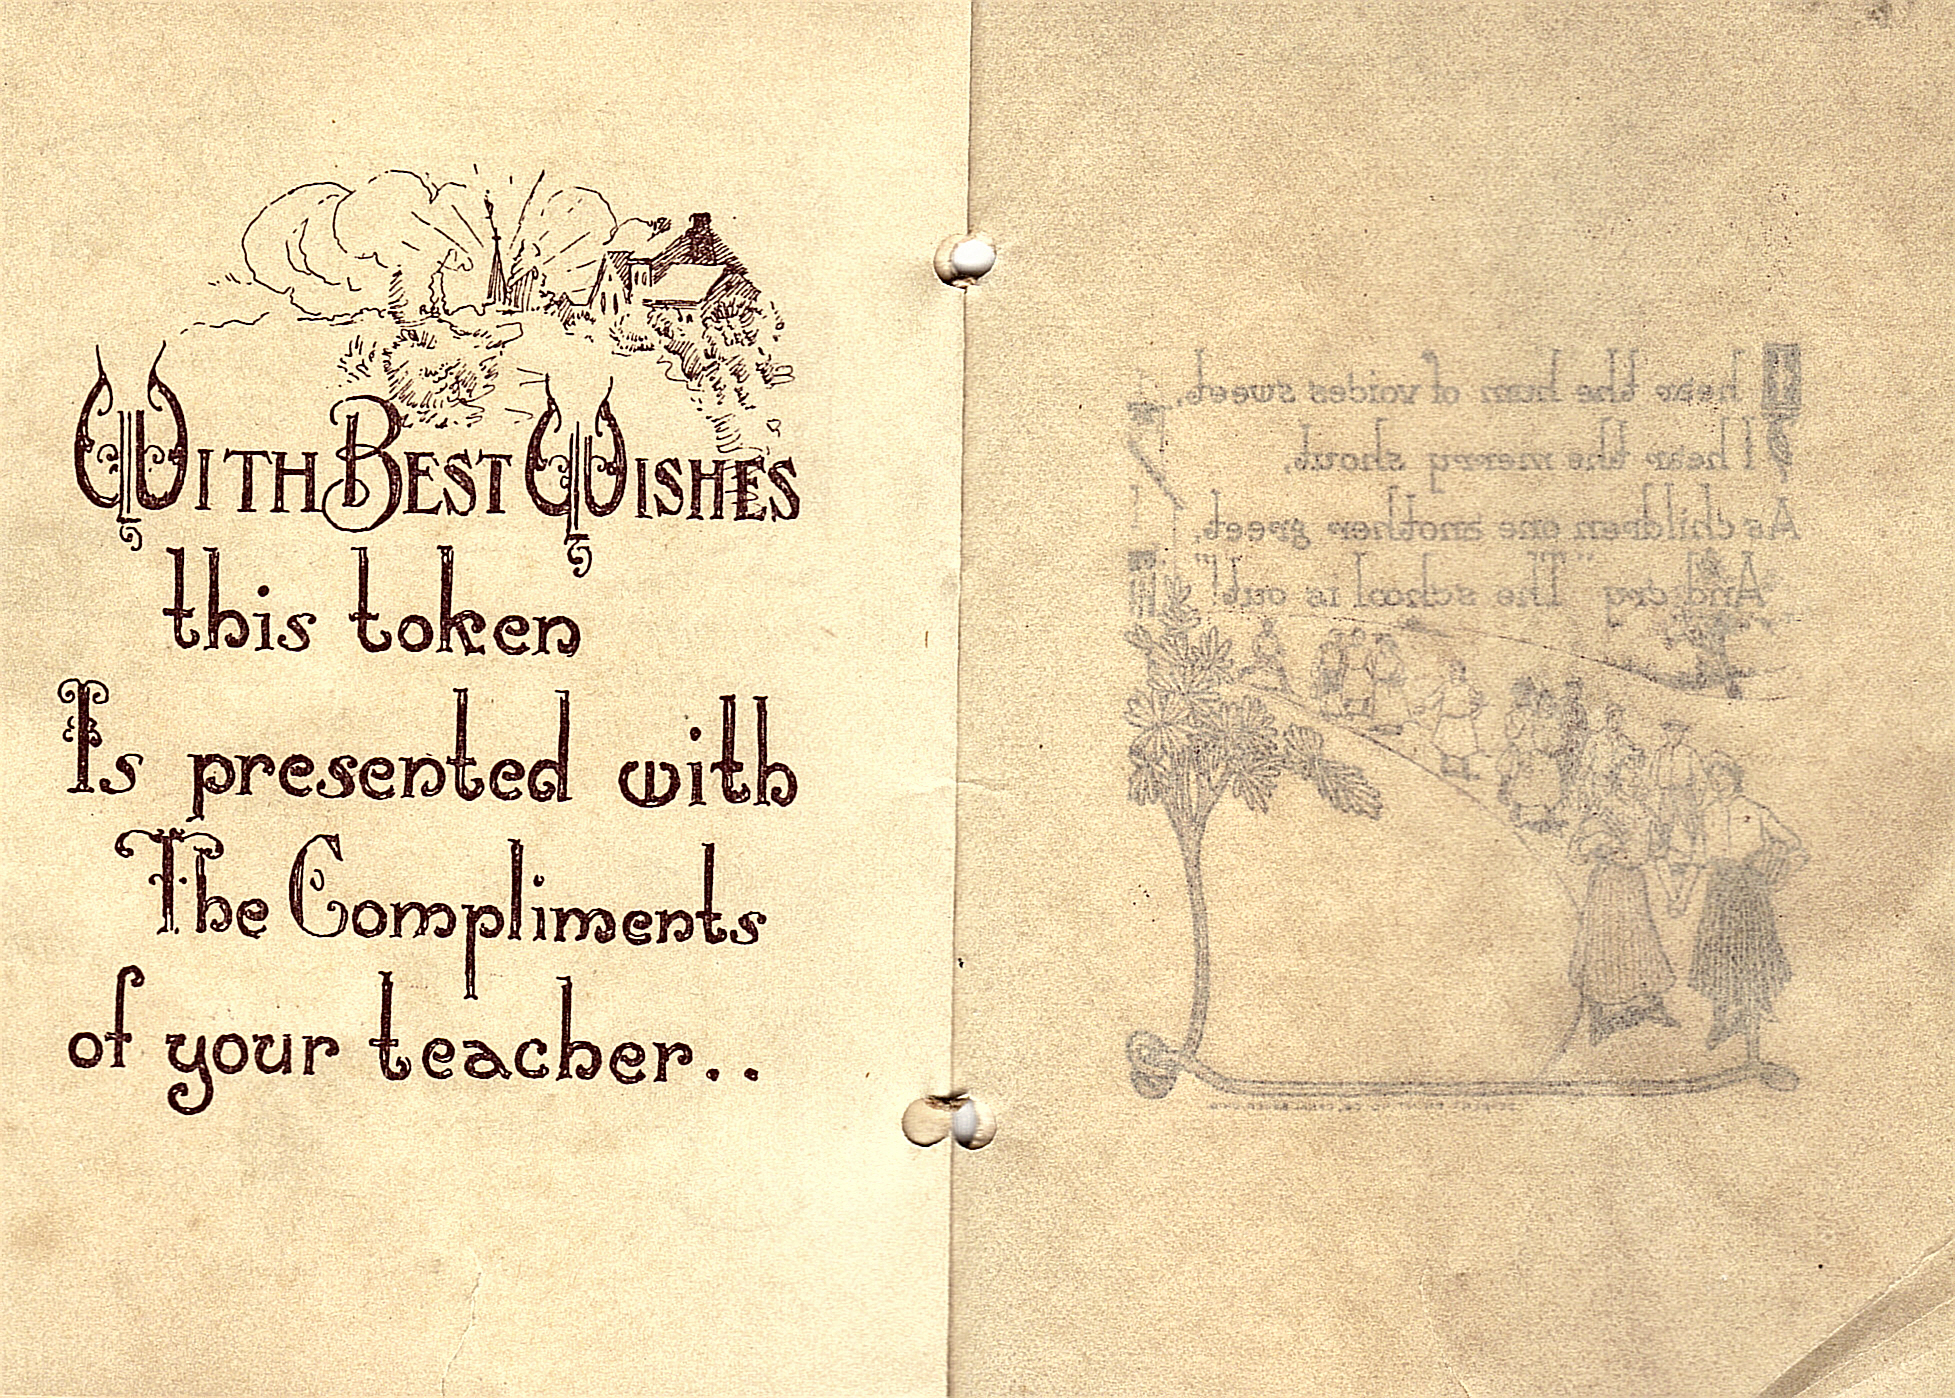 With Best Wishes
this token
Is presented with
The Compliments
of your teacher..
I hear the hum of voices sweet,
I hear the merry shout,
As children one another greet,
And cry "The school is out!"